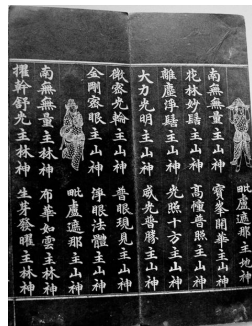 毗盧遮那主地神
南無無量主山神 寶峯開華主山神
花林妙髻主山神 高幢普照主山神
離塵淨髻主山神 光照十方主山神
大力光明主山神 威光普勝主山神
微密光輪主山神 普眼現見主山神
金剛密眼主山神 淨眼法體主山神
毗盧遮那主山神
南無無量主林神 布華如雲主林神
擢幹舒光主林神 生芽發曜主林神